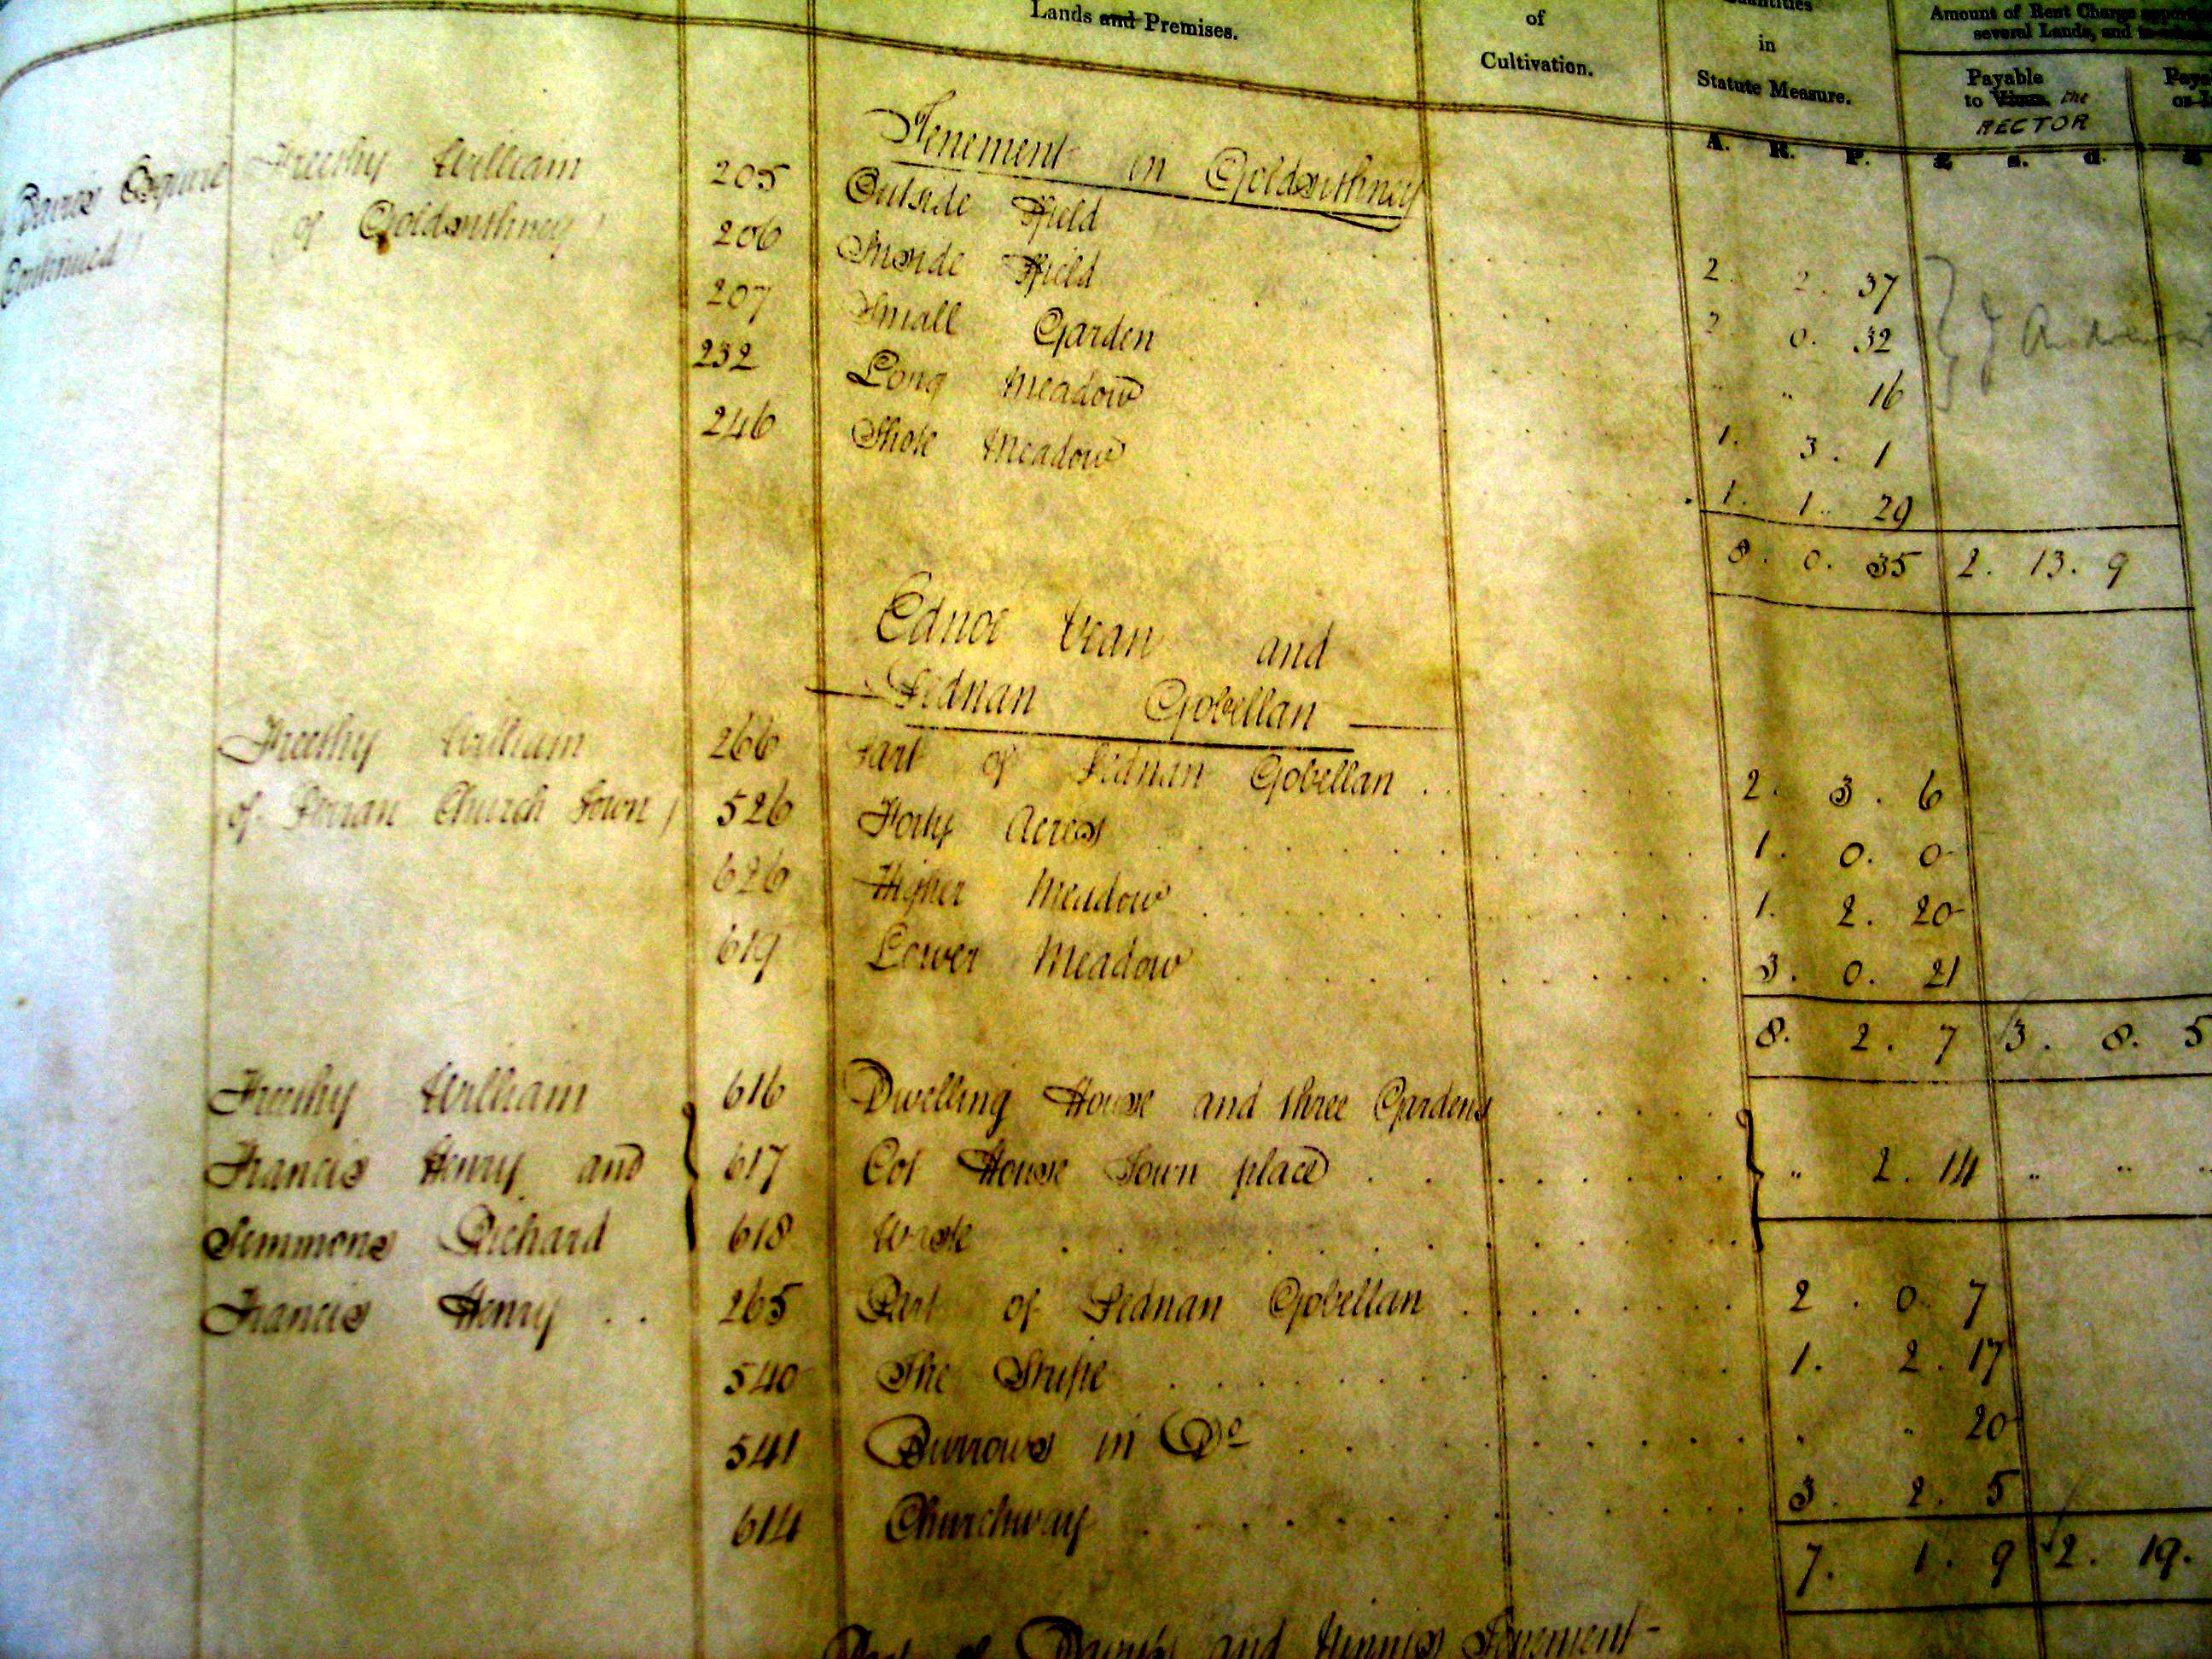 Lands and Premises.
of
Cultivation.
in
Statute Measure.
Amount of Rent Charge
several Lands, and
Payable
to the
RECTOR
A. R. P. £ s. d.
Esquire
Continued
Tenement in Goldsithney
Freethy William 205 Outside Field 2. 2. 37
of Goldsithney 206 Inside Field 2. 0. 32
207 Small Garden " " 16
232 Long Meadow 1. 3. 1
246 Shole Meadow 1. 1. 29
8. 0. 35 2. 13. 9
Ednoe vean and
Pednan Gobellan
Freethy William 266 Part of Pednan Gobellan 2. 3. 6
of Perran Church Town 526 Forty Acres 1. 0. 0
626 Higher Meadow 1. 2. 20
619 Lower Meadow 3. 0. 21
8. 2. 7 3. 8. 5
Freethy William 616 Dwelling House and three Gardens
Francis Henry and 617 Cot House Town place " 2. 14 " "
Semmons Richard 618 Waste
Francis Henry 265 Part of Pednan Gobellan 2. 0. 7
540 The Stripe 1. 2. 17
541 Burrows in Do 20
614 Churchway 3. 2. 5
7. 1. 9 2. 19.
Part of and Tenement